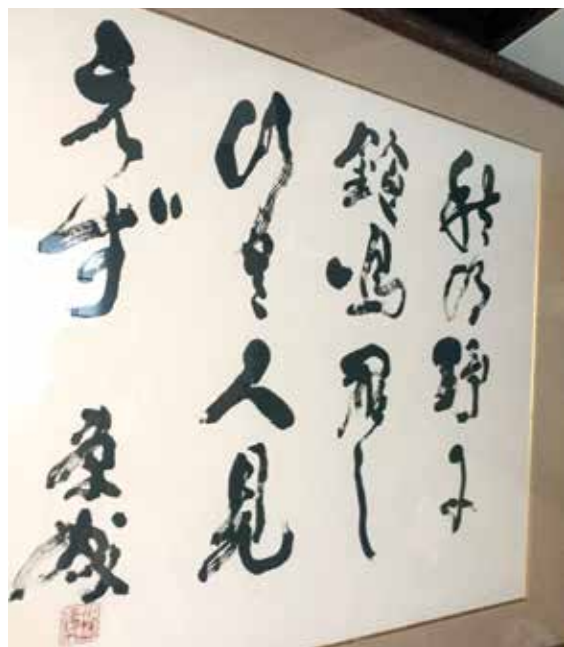 秋の野に
鈴鳴らし
ゆく人見
えず 康成